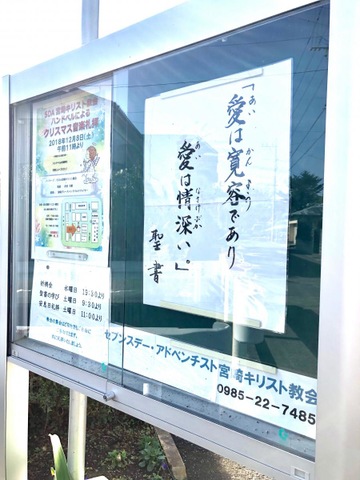 SDA 宮崎キリスト教会
ハンドベルによる
クリスマス音楽礼拝
2018年12月8日(土)
午前11時より
祈祷会 水曜日 19:30より
聖書の学び 土曜日 9:30より
安息日礼拝 土曜日 11:00より
「愛は寛容であり
あい かんよう
愛は情深い。」
あい なさけぶか
聖書
セブンスデー・アドベンチスト宮崎キリスト教会
0985-22-7485